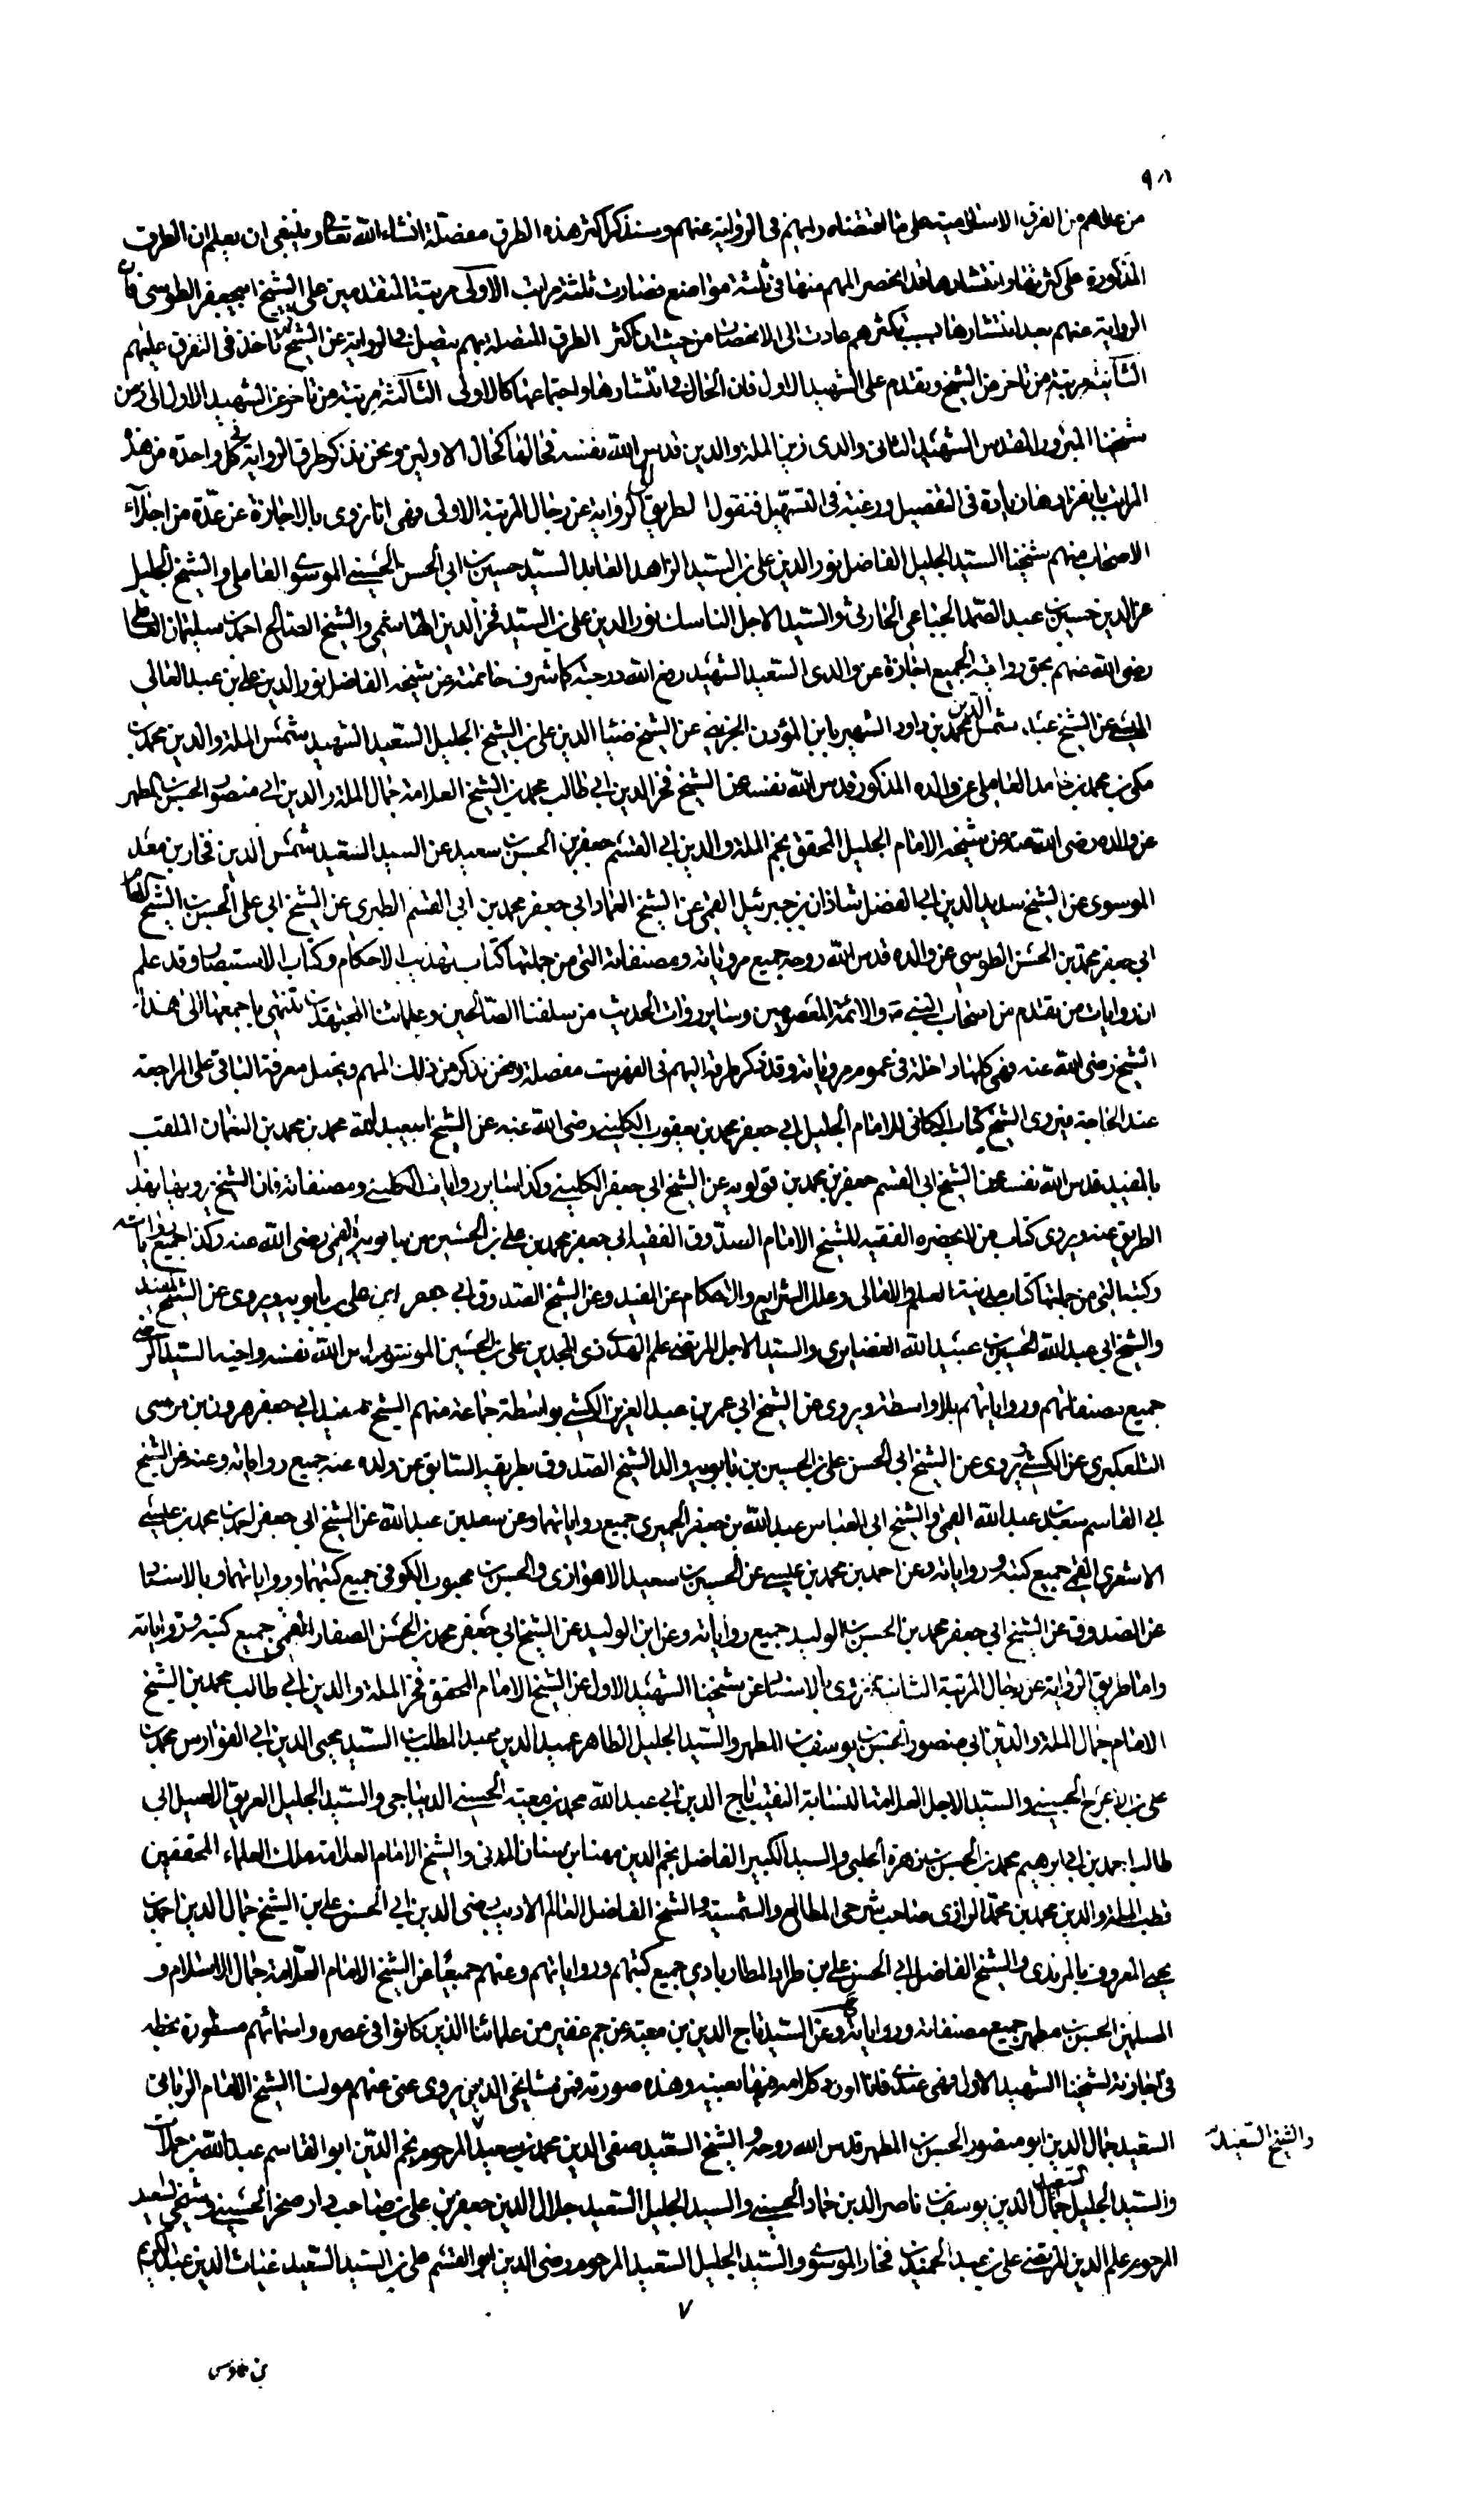 ٩٨
من عداهم من الفرق الاسلامية على ما اقتضاه رايهم فى الرواية عنهم وسنذكر اكثر هذه الطرق مفصلة انشاء الله تعالى وينبغى ان يعلم ان الطرق
المذكورة على كثرتها وانتشارها قد انحصر المهم منها فى ثلثة مواضع فصارت ثلثة مراتب الاولى مرتبة المتقدمين على الشيخ ابيجعفر الطوسى فان
الرواية عنهم بعد انتشارها بسبب تكثرهم عادت الى الانحصار من حيث ان اكثر الطرق المتصلة بهم يتصل فى الرواية عن الشيخ ثم تاخذ فى التفرق عليهم
الثانية مرتبة من تاخر من الشيخ وتقدم على الشهيد الاول فان الحال فى انتشارها واجتماعها كالاولى الثالثة مرتبة من تاخر عن الشهيد الاول الى زمن
شيخنا المبرور المقدس الشهيد الثانى والدى زين الملة والدين قدس الله نفسه فحالها كحال الاوليين ونحن نذكر طرق الرواية لكل واحدة من هذه
المراتب بانفرادها زيادة فى التفصيل ورغبة فى التسهيل فنقول اما طريق الرواية عن رجال المرتبة الاولى فهى انا نروى بالاجازة عن عدة من اجلاء
الاصحاب منهم شيخنا السيد الجليل الفاضل نور الدين على بن السيد الزاهد العابد السيد حسين بن ابى الحسن الحسينى الموسوى العاملى والشيخ الجليل
عز الدين حسين بن عبد الصمد الجباعى الحارثى والسيد الاجل الناسك نور الدين على بن السيد فخر الدين الهاشمى والشيخ الصالح احمد بن سليمان العاملى
رضى الله عنهم بحق رواية الجميع اجازة عن والدى السعيد الشهيد رفع الله درجته كما شرف خاتمته عن شيخه الفاضل نور الدين على بن عبد العالى
الميسى عن الشيخ شمس الدين محمد بن داود الشهير بابن المؤذن الجزينى عن الشيخ ضياء الدين على بن الشيخ الجليل السعيد الشهيد شمس الملة والدين محمد بن
مكى بن محمد بن حامد العاملى عن والده المذكور قدس الله نفسه عن الشيخ فخر الدين ابى طالب محمد بن الشيخ العلامة جمال الملة والدين ابى منصور الحسن بن المطهر
عن والده رضى الله عنه عن شيخه الامام الجليل المحقق نجم الملة والدين ابى القسم جعفر بن الحسن بن سعيد عن السيد السعيد شمس الدين فخار بن معد
الموسوى عن الشيخ سديد الدين ابى الفضل شاذان بن جبرئيل القمى عن الشيخ العماد ابى جعفر محمد بن ابى القسم الطبرى عن الشيخ ابى على الحسن بن الشيخ
ابى جعفر محمد بن الحسن الطوسى عن والده قدس الله روحه جميع مروياته ومصنفاته التى من جملتها كتاب تهذيب الاحكام وكتاب الاستبصار وقد علم
ان روايات من تقدم من اصحاب النبى ص والائمة المعصومين وساير روات الحديث من سلفنا الصالحين وعلمائنا المجتهدين تنتهى باجمعها الى هذا
الشيخ رضى الله عنه فهى كلها داخلة فى عموم مروياته وقد ذكر طرقه اليهم فى الفهرست مفصلة ونحن نذكر من ذلك المهم ونحيل معرفة الباقى على المراجعة
عند الحاجة فيروى الشيخ كتاب الكافى للامام الجليل ابى جعفر محمد بن يعقوب الكلينى رضى الله عنه عن الشيخ ابيعبد الله محمد بن محمد بن النعمان الملقب
بالمفيد قدس الله نفسه عن الشيخ ابى القسم جعفر بن محمد بن قولويه عن الشيخ ابى جعفر الكلينى وكذا ساير روايات الكلينى ومصنفاته فان الشيخ يرويها بهذا
الطريق عنه ويروى كتاب من لا يحضره الفقيه للشيخ الامام الصدوق الفقيه ابى جعفر محمد بن على بن الحسين بن بابويه القمى رضى الله عنه وكذا جميع رواياته
وكتبه التى من جملتها كتاب مدينة العلم والامالى وعلل الشرايع والاحكام عن المفيد وعن الشيخ الصدوق ابى جعفر ابن على بن بابويه ويروى عن الشيخ المفيد
والشيخ ابى عبد الله الحسين بن عبيد الله الغضايرى والسيد الاجل المرتضى علم الهدى ذى المجدين على بن الحسين الموسوى قدس الله نفسه واخيه السيد الرضى
جميع مصنفاتهم ورواياتهم بلا واسطة ويروى عن الشيخ ابى عمر بن عبد العزيز الكشى بواسطة جماعة منهم الشيخ ابى جعفر هرون بن موسى
التلعكبرى عن الكشى ويروى عن الشيخ ابى الحسن على بن الحسين بن بابويه والد الشيخ الصدوق بطريقه السابق عن ولده عنه جميع رواياته وعنه عن الشيخ
ابى القاسم سعد بن عبد الله القمى والشيخ ابى العباس عبد الله بن جعفر الحميرى جميع رواياتهما وعن سعد بن عبد الله عن الشيخ ابى جعفر احمد بن محمد بن عيسى
الاشعرى القمى جميع كتبه ورواياته وعن احمد بن محمد بن عيسى عن الحسين بن سعيد الاهوازى والحسن بن محبوب الكوفى جميع كتبهما ورواياتهما وبالاسناد
عن الصدوق عن الشيخ ابى جعفر محمد بن الحسن بن الوليد جميع رواياته وعن ابن الوليد عن الشيخ ابى جعفر محمد بن الحسن الصفار القمى جميع كتبه ورواياته
واما طريق الرواية عن رجال المرتبة الثانية فنروى بالاسناد عن شيخنا الشهيد الاول عن الشيخ الامام المحقق فخر الملة والدين ابى طالب محمد بن الشيخ
الامام جمال الملة والدين ابى منصور الحسن بن يوسف بن المطهر والسيد الجليل الطاهر عميد الدين عبد المطلب بن السيد مجد الدين ابى الفوارس محمد بن
على بن الاعرج الحسينى والسيد الاجل العلامة النسابة النقيب تاج الدين ابى عبد الله محمد بن معية الحسينى الديباجى والسيد الجليل العريق الاصيل ابى
طالب احمد بن ابى ابرهيم محمد بن الحسن بن زهرة الحلبى والسيد الكبير الفاضل نجم الدين مهنا بن سنان المدنى والشيخ الامام العلامة ملك العلماء المحققين
قطب الملة والدين محمد بن محمد الرازى صاحب شرحى المطالع والشمسية والشيخ الفاضل العالم الاديب رضى الدين ابى الحسن على بن الشيخ جمال الدين احمد بن
يحيى المعروف بالمزيدى والشيخ الفاضل ابى الحسن على بن طراد المطاربادى جميع كتبهم ورواياتهم وعنهم جميعا عن الشيخ الامام العلامة جمال الاسلام و
المسلمين الحسن بن مطهر جميع مصنفاته ورواياته وعن السيد تاج الدين بن معية عن جم غفير من علمائنا الذين كانوا فى عصره واسمائهم مسطورة بخطه
فى اجازته لشيخنا الشهيد الاول وهى عندى فانا اورد كلامه فيها بعينه وهذه صورته فمن مشايخى الذين يروى عنى عنهم مولينا الشيخ الامام الربانى
السعيد جمال الدين ابو منصور الحسن بن المطهر قدس الله روحه والشيخ السعيد صفى الدين محمد بن سعيد المرحوم نجم الدين ابو القاسم عبد الله بن حملات
والشيخ السعيد
والسيد الجليل السعيد جمال الدين يوسف بن ناصر الدين حماد الحسينى والسيد الجليل السعيد جلال الدين جعفر بن على بن صاحب دار صخر الحسينى وشيخى السعيد
المرحوم علم الدين المرتضى على بن عبد الحميد بن فخار الموسوى والسيد الجليل السعيد المرحوم رضى الدين ابو القسم على بن السيد السعيد غياث الدين عبد الكريم
٧
بن طاوس